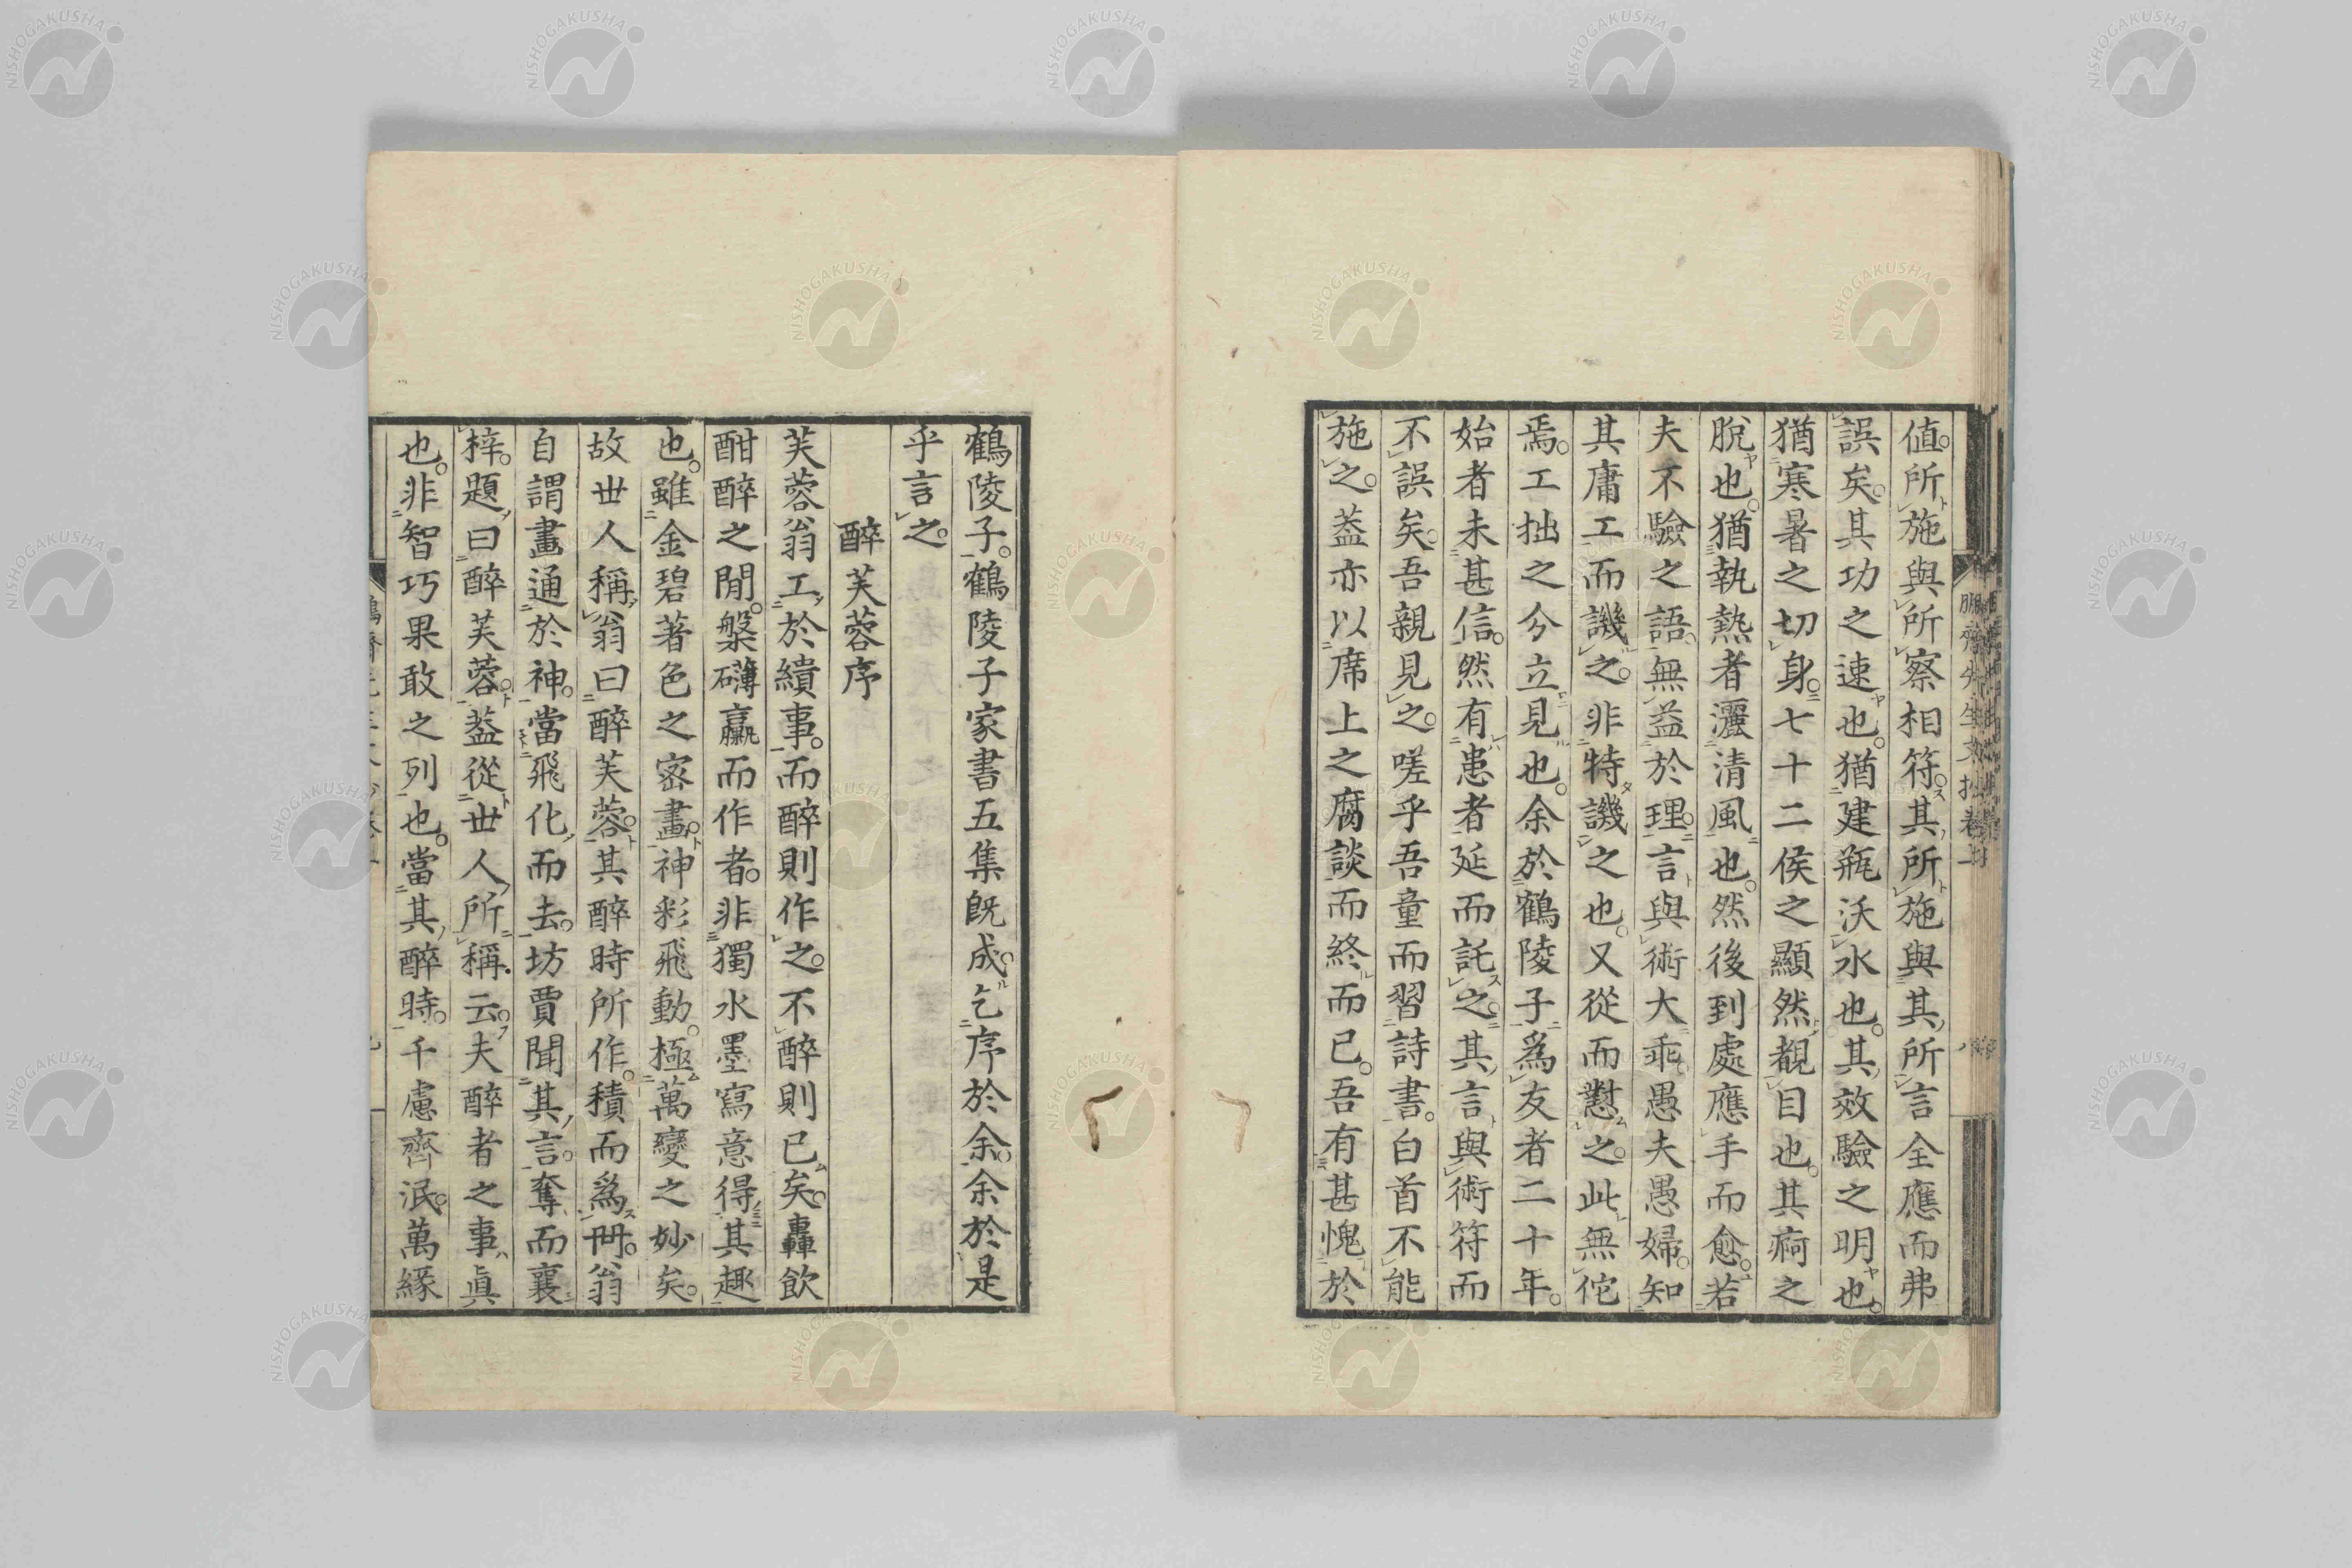 値。所施與所察相符。其所施與其所言全應而弗
誤矣。其功之速也。猶建瓶沃水也。其效驗之明也。
猶寒暑之切身。七十二侯之顯然覩目也。其痾之
脫也。猶執熱者灑清風也。然後到處應手而愈。若
夫不驗之語。無益於理。言與術大乖。愚夫愚婦。知
其庸工而譏之。非特譏之也。又從而懟之。此無佗
焉。工拙之分立見也。余於鶴陵子爲友者二十年。
始者未甚信。然有患者延而託之。其言與術符而
不誤矣。吾親見之。嗟乎吾童而習詩書。白首不能
施之。蓋亦以席上之腐談而終而已。吾有甚愧於
鶴陵子。鶴陵子家書五集既成。乞序於余。余於是
乎言之。
醉芙蓉序
芙蓉翁工於繢事。而醉則作之。不醉則已矣。轟飲
酣醉之閒。槃礴臝而作者。非獨水墨寫意得其趣
也。雖金碧著色之密畫。神彩飛動。極萬變之妙矣。
故世人稱翁曰醉芙蓉。其醉時所作。積而爲冊。翁
自謂畫通於神。當飛化而去。坊賈聞其言。奪而襄
梓。題曰醉芙蓉。蓋從世人所稱云。夫醉者之事。眞
也。非智巧果敢之列也。當其醉時。千慮齊泯。萬緣
NISHOGAKUSHA